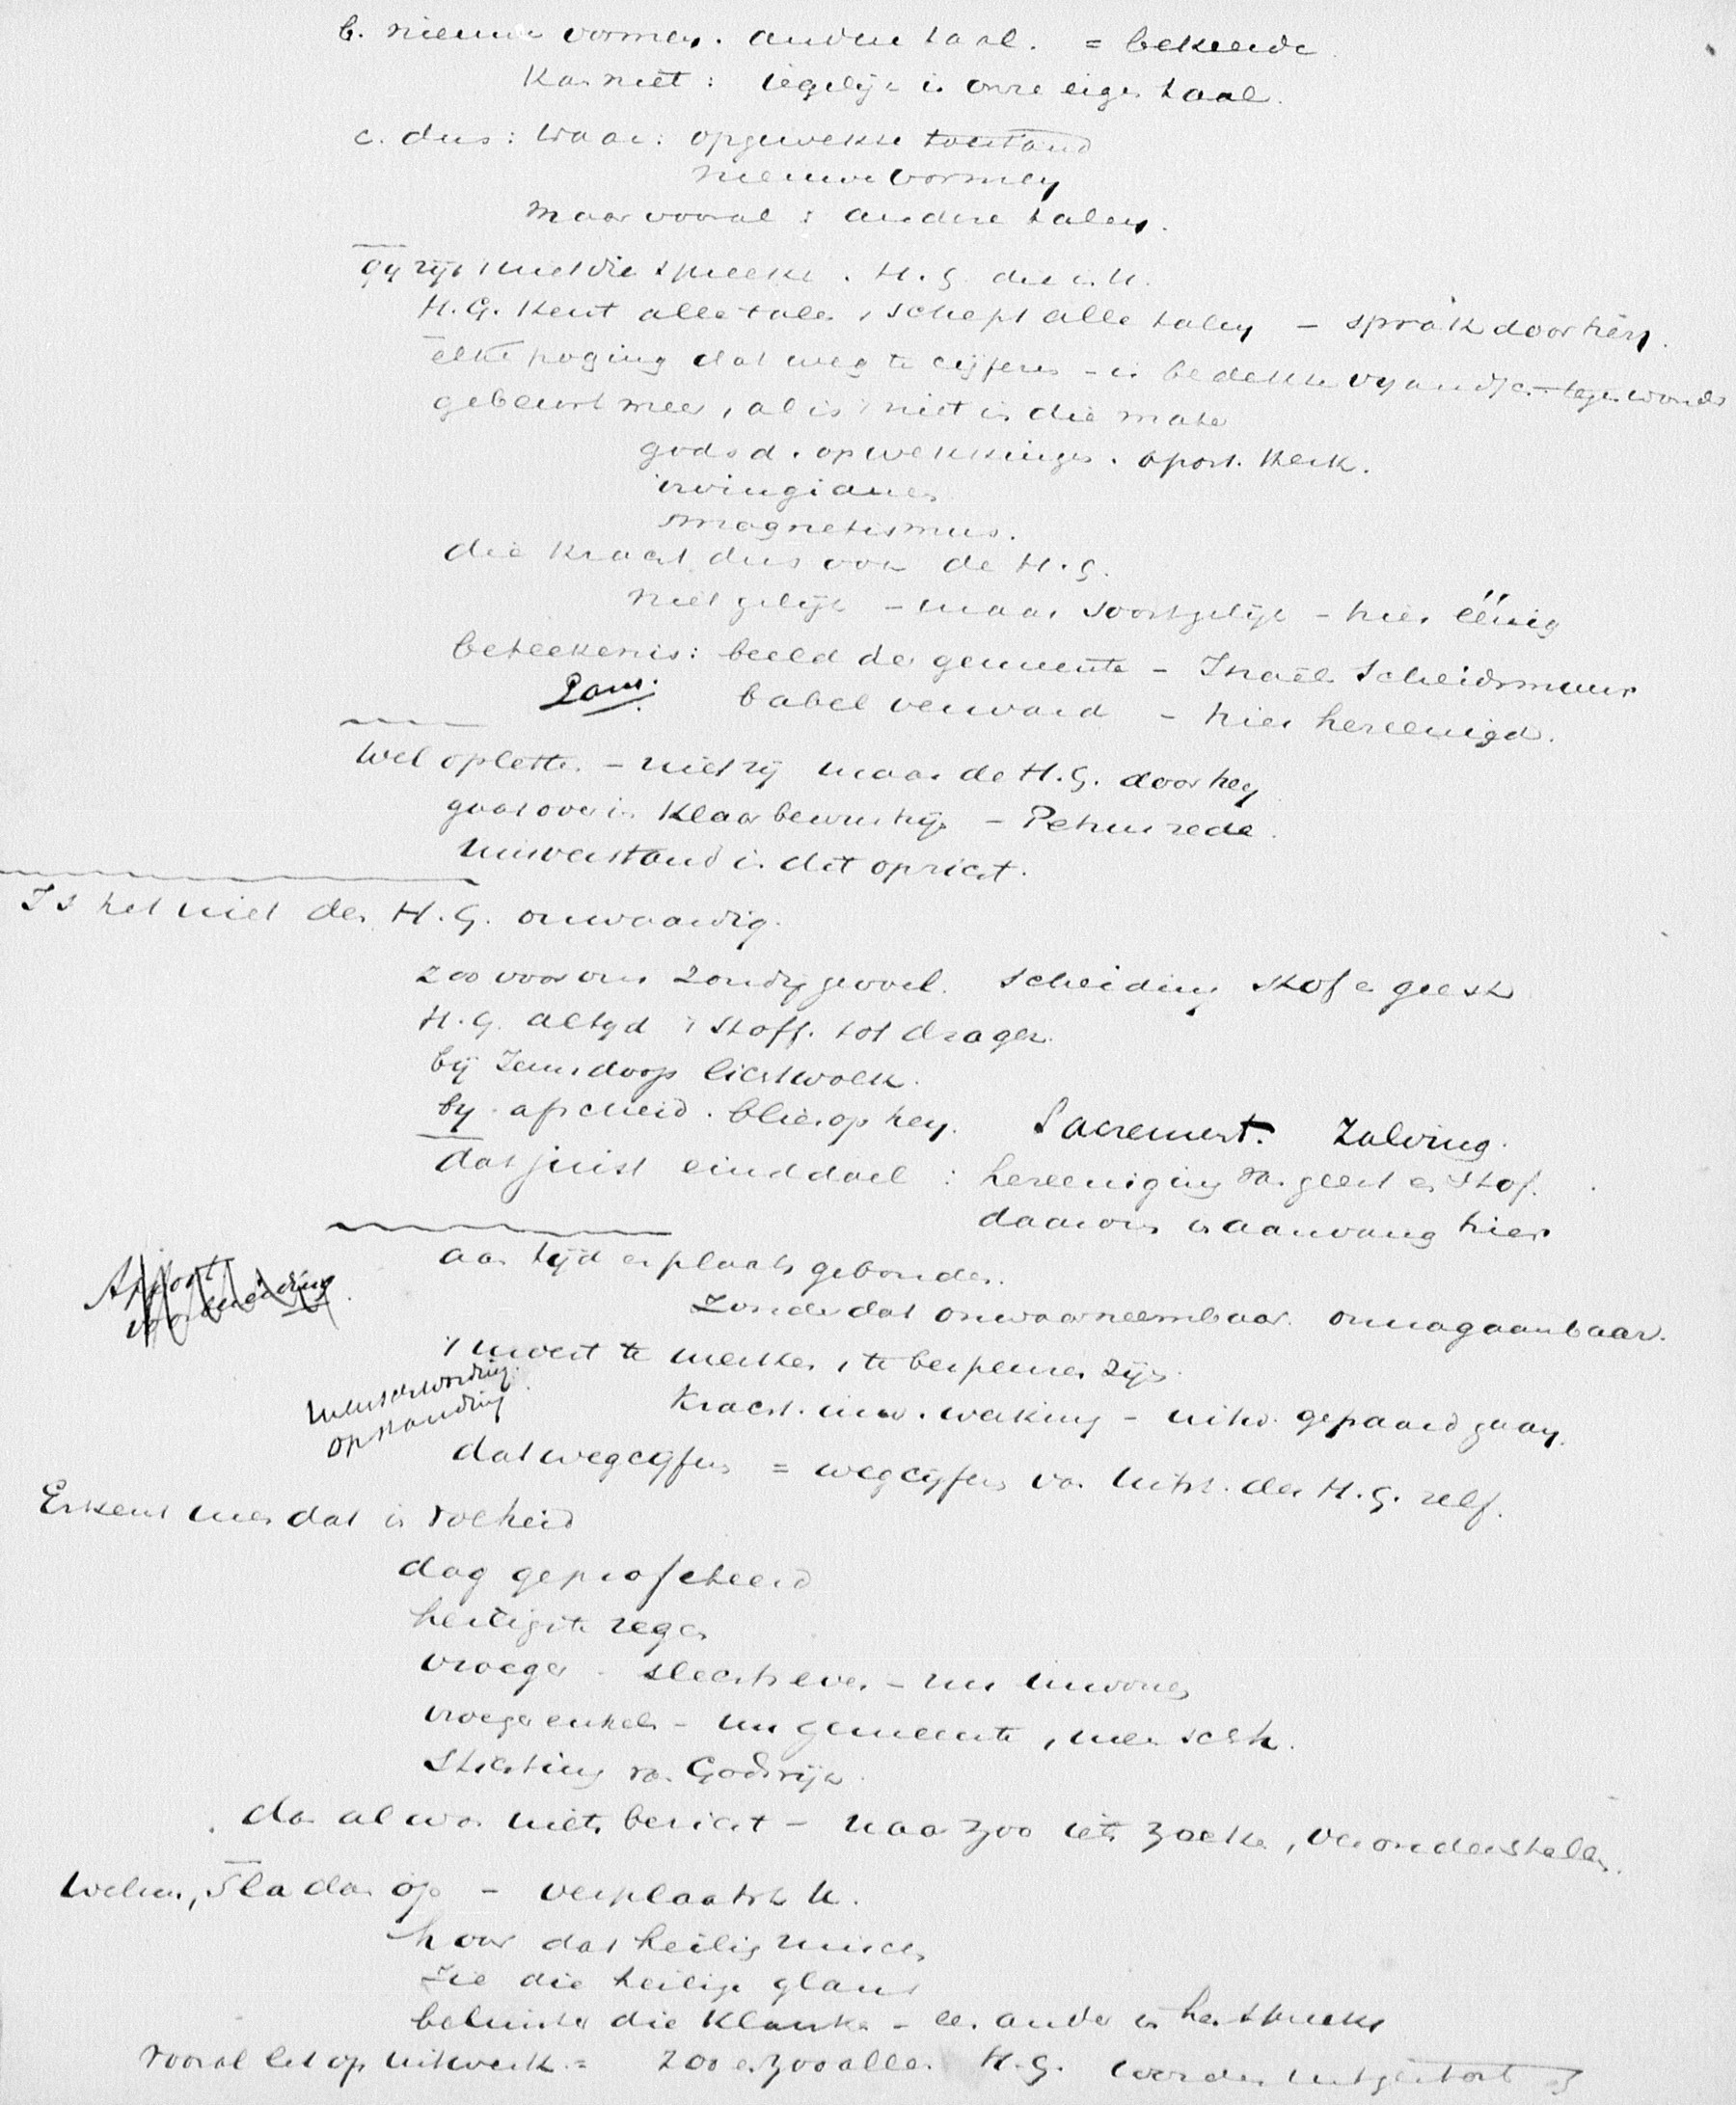 b. nieuwe vormen. andere taal. = bekeerde
Kan niet: iegelijk in onze eigen taal.
c. dus: waar: opgewekte toestand
nieuwe vormen
maar vooral: andere talen.
gij zijt niet die spreekt. H.G. die in U.
H.G. kent alle talen, schept alle talen – sprak door hen.
elke poging dat weg te cijferen – is bedekte vyandsc. tegen wonder
gebeurt meer, al is 't niet in die mate
godsd. opwekkingen. apost. Kerk.
irvingianen
magnetismus.
die kracht dus van de H.G.
niet gelijk – maar soortgelijk – hier éénig
beteekenis: beeld der gemeente – Israël scheidsmuur
babel verward – hier hereenigd.
Wel opletten – niet zij maar de H.G. door hen
gaat over in klaar bewustzijn – Petrus rede.
Misverstand in dit opzicht.
Is het niet den H.G. onwaardig.
zoo voor ons zondig gevoel. scheiding stof en geest
H.G. altyd 't stoff. tot drager.
bij Jezus doop lichtwolk.
by afscheid. blies op hen. Sacrement. Zalving.
dat juist einddoel: hereeniging van geest en stof.
daarom in aanvang hier
aan tijd en plaats gebonden.
Zonder dat onwaarneembaar. onnagaanbaar.
't moest te merken, te bespeuren zijn.
Menschwording.
opstanding
Kracht. inw. werking – uitw. gepaard gaan.
dat wegcijferen = wegcijferen van uitst. der H.G. zelf.
Erkent men dat in volheid
dag geprofeteerd
heiligste zegen
vroeger – slechts even – nu inwonen
vroeger enkelen – nu gemeente, menschh.
Stichting van Godsrijk.
dan al was niets bericht – naar zoo iets zoeken, veronderstellen.
Welnu, sla dan op – verplaatst U.
hoor dat heilig ruischen
Zie die heilige glans
beluister die klanken – een ander in hen spreekt
vooral let op uitwerk. = zoo en zoo allen H.G. worden uitgestort